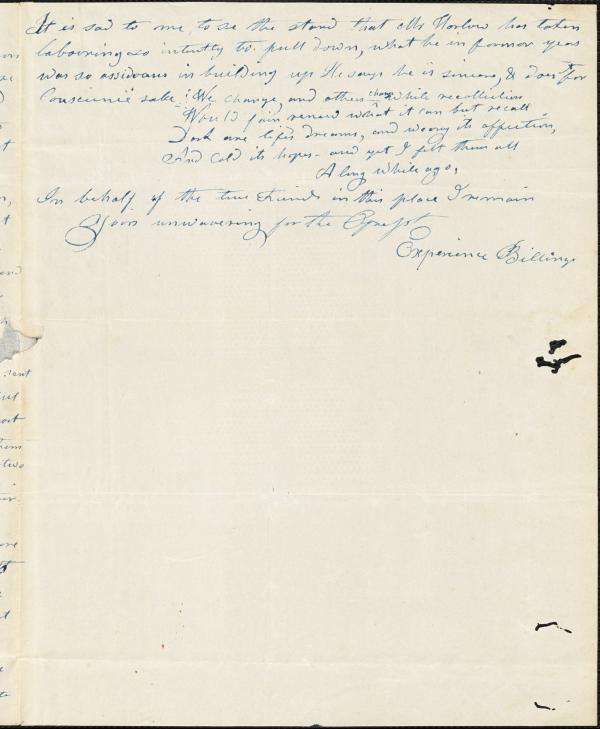 It is sad to me, to se the stand that Mr Harlow has taken
labouring so intently to pull down, what he in former years
was so assiduous in building up He says he is sincere, & does for
Conscience sake "We change, and others change while recollection
Would fain renew what it can but recall
Dark are life's dreams, and weary its affection,
And cold its hopes - and yet I felt them all
A long while ago,
In behalf of the true Friends in this place I remain
Yours unwavering for the
Experience Billings
and
two